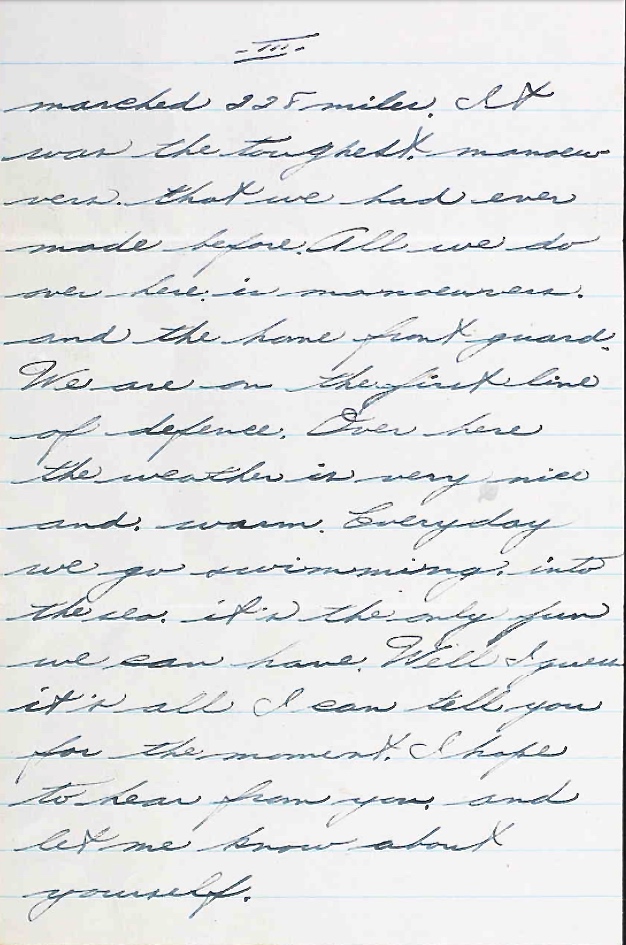 - III -
marched 228 miles. It
was the toughest. manoeu-
vers. that we had ever
made before. All we do
over here. is manoeuvers.
and the home front guard.
We are on the first line
of defence. Over here
the weather is very nice
and. warm. Everyday
we go swimming. into
the sea. it's the only fun
we can have. Well I guess
it's all I can tell you
for the moment. I hope
to hear from you. and
let me know about
yourself.